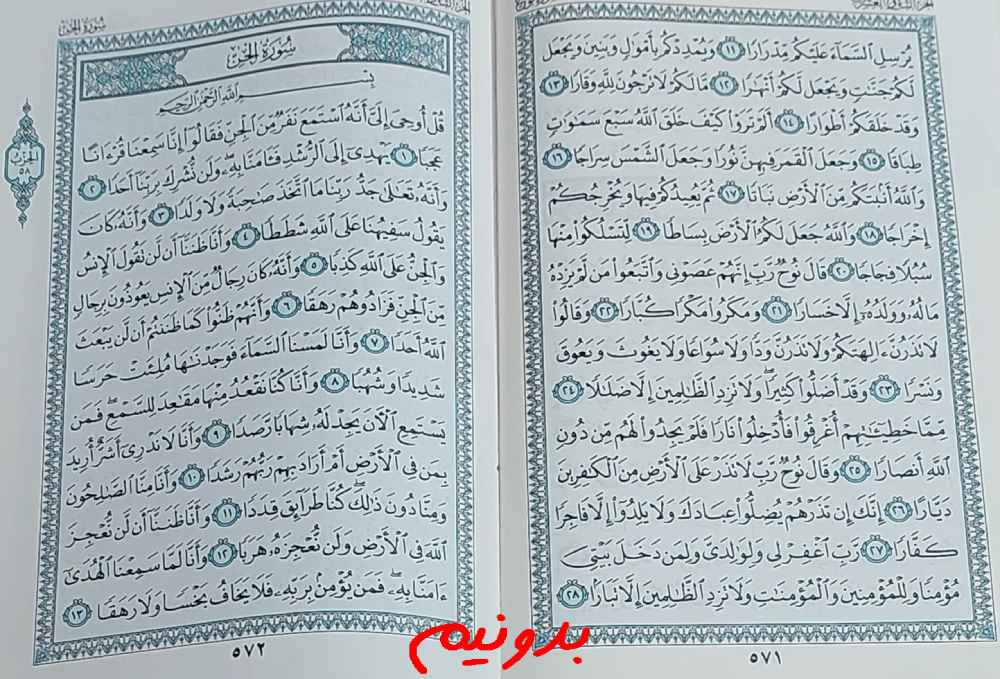 يُرْسِلِ السَّمَاءَ عَلَيْكُم مِّدْرَارًا ١١ وَيُمْدِدْكُم بِأَمْوَالٍ وَبَنِينَ وَيَجْعَل
لَّكُمْ جَنَّاتٍ وَيَجْعَل لَّكُمْ أَنْهَارًا ١٢ مَّا لَكُمْ لَا تَرْجُونَ لِلَّهِ وَقَارًا ١٣
وَقَدْ خَلَقَكُمْ أَطْوَارًا ١٤ أَلَمْ تَرَوْا كَيْفَ خَلَقَ اللَّهُ سَبْعَ سَمَاوَاتٍ
طِبَاقًا ١٥ وَجَعَلَ الْقَمَرَ فِيهِنَّ نُورًا وَجَعَلَ الشَّمْسَ سِرَاجًا ١٦
وَاللَّهُ أَنبَتَكُم مِّنَ الْأَرْضِ نَبَاتًا ١٧ ثُمَّ يُعِيدُكُمْ فِيهَا وَيُخْرِجُكُمْ
إِخْرَاجًا ١٨ وَاللَّهُ جَعَلَ لَكُمُ الْأَرْضَ بِسَاطًا ١٩ لِّتَسْلُكُوا مِنْهَا
سُبُلًا فِجَاجًا ٢٠ قَالَ نُوحٌ رَّبِّ إِنَّهُمْ عَصَوْنِي وَاتَّبَعُوا مَن لَّمْ يَزِدْهُ
مَالُهُ وَوَلَدُهُ إِلَّا خَسَارًا ٢١ وَمَكَرُوا مَكْرًا كُبَّارًا ٢٢ وَقَالُوا
لَا تَذَرُنَّ آلِهَتَكُمْ وَلَا تَذَرُنَّ وَدًّا وَلَا سُوَاعًا وَلَا يَغُوثَ وَيَعُوقَ
وَنَسْرًا ٢٣ وَقَدْ أَضَلُّوا كَثِيرًا ۖ وَلَا تَزِدِ الظَّالِمِينَ إِلَّا ضَلَالًا ٢٤
مِّمَّا خَطِيئَاتِهِمْ أُغْرِقُوا فَأُدْخِلُوا نَارًا فَلَمْ يَجِدُوا لَهُم مِّن دُونِ
اللَّهِ أَنصَارًا ٢٥ وَقَالَ نُوحٌ رَّبِّ لَا تَذَرْ عَلَى الْأَرْضِ مِنَ الْكَافِرِينَ
دَيَّارًا ٢٦ إِنَّكَ إِن تَذَرْهُمْ يُضِلُّوا عِبَادَكَ وَلَا يَلِدُوا إِلَّا فَاجِرًا
كَفَّارًا ٢٧ رَّبِّ اغْفِرْ لِي وَلِوَالِدَيَّ وَلِمَن دَخَلَ بَيْتِيَ
مُؤْمِنًا وَلِلْمُؤْمِنِينَ وَالْمُؤْمِنَاتِ وَلَا تَزِدِ الظَّالِمِينَ إِلَّا تَبَارًا ٢٨
٥٧١
سُورَةُ الْجِنِّ
سُورَةُ الْجِنِّ
بِسْمِ اللَّهِ الرَّحْمَٰنِ الرَّحِيمِ
قُلْ أُوحِيَ إِلَيَّ أَنَّهُ اسْتَمَعَ نَفَرٌ مِّنَ الْجِنِّ فَقَالُوا إِنَّا سَمِعْنَا قُرْآنًا
عَجَبًا ١ يَهْدِي إِلَى الرُّشْدِ فَآمَنَّا بِهِ ۖ وَلَن نُّشْرِكَ بِرَبِّنَا أَحَدًا ٢
وَأَنَّهُ تَعَالَىٰ جَدُّ رَبِّنَا مَا اتَّخَذَ صَاحِبَةً وَلَا وَلَدًا ٣ وَأَنَّهُ كَانَ
يَقُولُ سَفِيهُنَا عَلَى اللَّهِ شَطَطًا ٤ وَأَنَّا ظَنَنَّا أَن لَّن تَقُولَ الْإِنسُ
وَالْجِنُّ عَلَى اللَّهِ كَذِبًا ٥ وَأَنَّهُ كَانَ رِجَالٌ مِّنَ الْإِنسِ يَعُوذُونَ بِرِجَالٍ
مِّنَ الْجِنِّ فَزَادُوهُمْ رَهَقًا ٦ وَأَنَّهُمْ ظَنُّوا كَمَا ظَنَنتُمْ أَن لَّن يَبْعَثَ
اللَّهُ أَحَدًا ٧ وَأَنَّا لَمَسْنَا السَّمَاءَ فَوَجَدْنَاهَا مُلِئَتْ حَرَسًا
شَدِيدًا وَشُهُبًا ٨ وَأَنَّا كُنَّا نَقْعُدُ مِنْهَا مَقَاعِدَ لِلسَّمْعِ ۖ فَمَن
يَسْتَمِعِ الْآنَ يَجِدْ لَهُ شِهَابًا رَّصَدًا ٩ وَأَنَّا لَا نَدْرِي أَشَرٌّ أُرِيدَ
بِمَن فِي الْأَرْضِ أَمْ أَرَادَ بِهِمْ رَبُّهُمْ رَشَدًا ١٠ وَأَنَّا مِنَّا الصَّالِحُونَ
وَمِنَّا دُونَ ذَٰلِكَ ۖ كُنَّا طَرَائِقَ قِدَدًا ١١ وَأَنَّا ظَنَنَّا أَن لَّن نُّعْجِزَ
اللَّهَ فِي الْأَرْضِ وَلَن نُّعْجِزَهُ هَرَبًا ١٢ وَأَنَّا لَمَّا سَمِعْنَا الْهُدَىٰ
آمَنَّا بِهِ ۖ فَمَن يُؤْمِن بِرَبِّهِ فَلَا يَخَافُ بَخْسًا وَلَا رَهَقًا ١٣
الحزب
٥٨
٥٧٢
بدونیم